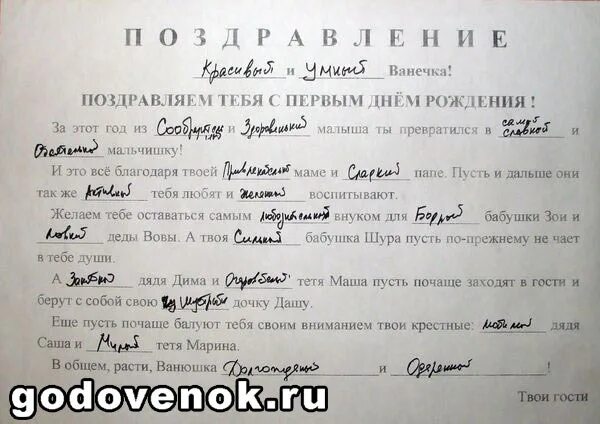 ПОЗДРАВЛЕНИЕ
Красивый и умный Ванечка!
ПОЗДРАВЛЯЕМ ТЕБЯ С ПЕРВЫМ ДНЁМ РОЖДЕНИЯ !
За этот год из и Здоровенький малыша ты превратился в самый славной и
мальчишку!
И это всё благодаря твоей маме и Сладкий папе. Пусть и дальше они
так же Активный тебя любят и воспитывают.
Желаем тебе оставаться самым любознательный внуком для Бодрый бабушки Зои и
Ловкий деды Вовы. А твоя Сильный бабушка Шура пусть по-прежнему не чает
в тебе души.
А дядя Дима и тетя Маша пусть почаще заходят в гости и
берут с собой свою дочку Дашу.
Еще пусть почаще балуют тебя своим вниманием твои крестные: дядя
Саша и Милый тетя Марина.
В общем, расти, Ванюшка Долгожданый и !
Твои гости
godovenok.ru